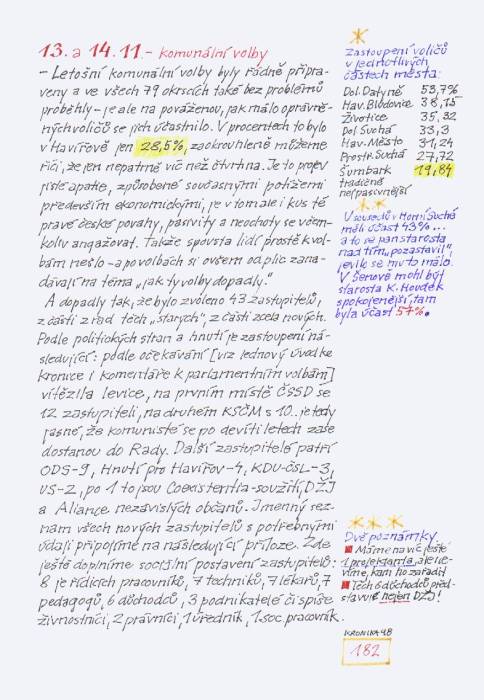 13. a 14. 11. - komunální volby
- Letošní komunální volby byly řádně připra-
veny a ve všech 79 okrscích také bez problémů
proběhly - je ale na pováženou, jak málo oprávně-
ných voličů se jich účastnilo. V procentech to bylo
v Havířově jen 28,5%, zaokrouhleně můžeme
říci, že jen nepatrně víc než čtvrtina. Je to projev
jisté apatie, způsobené současnými potížemi
především ekonomickými, je v tom ale i kus té
pravé české povahy, pasivity a neochoty se v čem-
koliv angažovat. Takže spousta lidí prostě k vol-
bám nešlo - a po volbách si ovšem od plic zana-
dávají na téma „jak ty volby dopadly."
A dopadly tak, že bylo zvoleno 43 zastupitelů,
z části z řad těch „starých", z části zcela nových.
Podle politických stran a hnutí je zastoupení ná-
sledující: podle očekávání [viz lednový úvod ke
kronice i komentáře k parlamentním volbám]
vítězila levice, na prvním místě ČSSD se
12 zastupiteli, na druhém KSČM s 10.. je tedy
jasné, že komunisté se po devíti letech zase
dostanou do Rady. Další zastupitelé patří
ODS-9, Hnutí pro Havířov-4, KDU-ČSL-3,
US-2, po 1 to jsou Coexistentia-soužití, DŽJ
a Aliance nezávislých občanů. Jmenný sez-
nam všech nových zastupitelů s potřebnými
údaji připojíme na následující příloze. Zde
ještě doplníme sociální postavení zastupitelů:
8 je řídících pracovníků, 7 techniků, 7 lékařů, 7
pedagogů, 6 důchodců, 3 podnikatelé či spíše
živnostníci, 2 právníci, 1 úředník, 1 soc. pracovník.
Zastoupení voličů
v jednotlivých
částech města:
Dol. Datyně 53,7%
Hav. Bludovice 38,15
Životice 35,32
Dol. Suchá 33,3
Hav.-Město 31,24
Prostř. Suchá 27,72
Šumbark 19,84
tradičně
nejpasivnější
V sousedů v Horní Suché
měli účast 43%...
a to se pan starosta
nad tím „pozastavil",
jevilo se mu to málo.
V Šenově mohl být
starosta K. Houdek
spokojenější, tam
byla účast 57%.
Dvě poznámky
Máme navíc ještě
1 projektanta, ale ne-
víme, kam ho zařadit
Těch 6 důchodců před-
stavuje nejen DŽJ!
KRONIKA 98
182